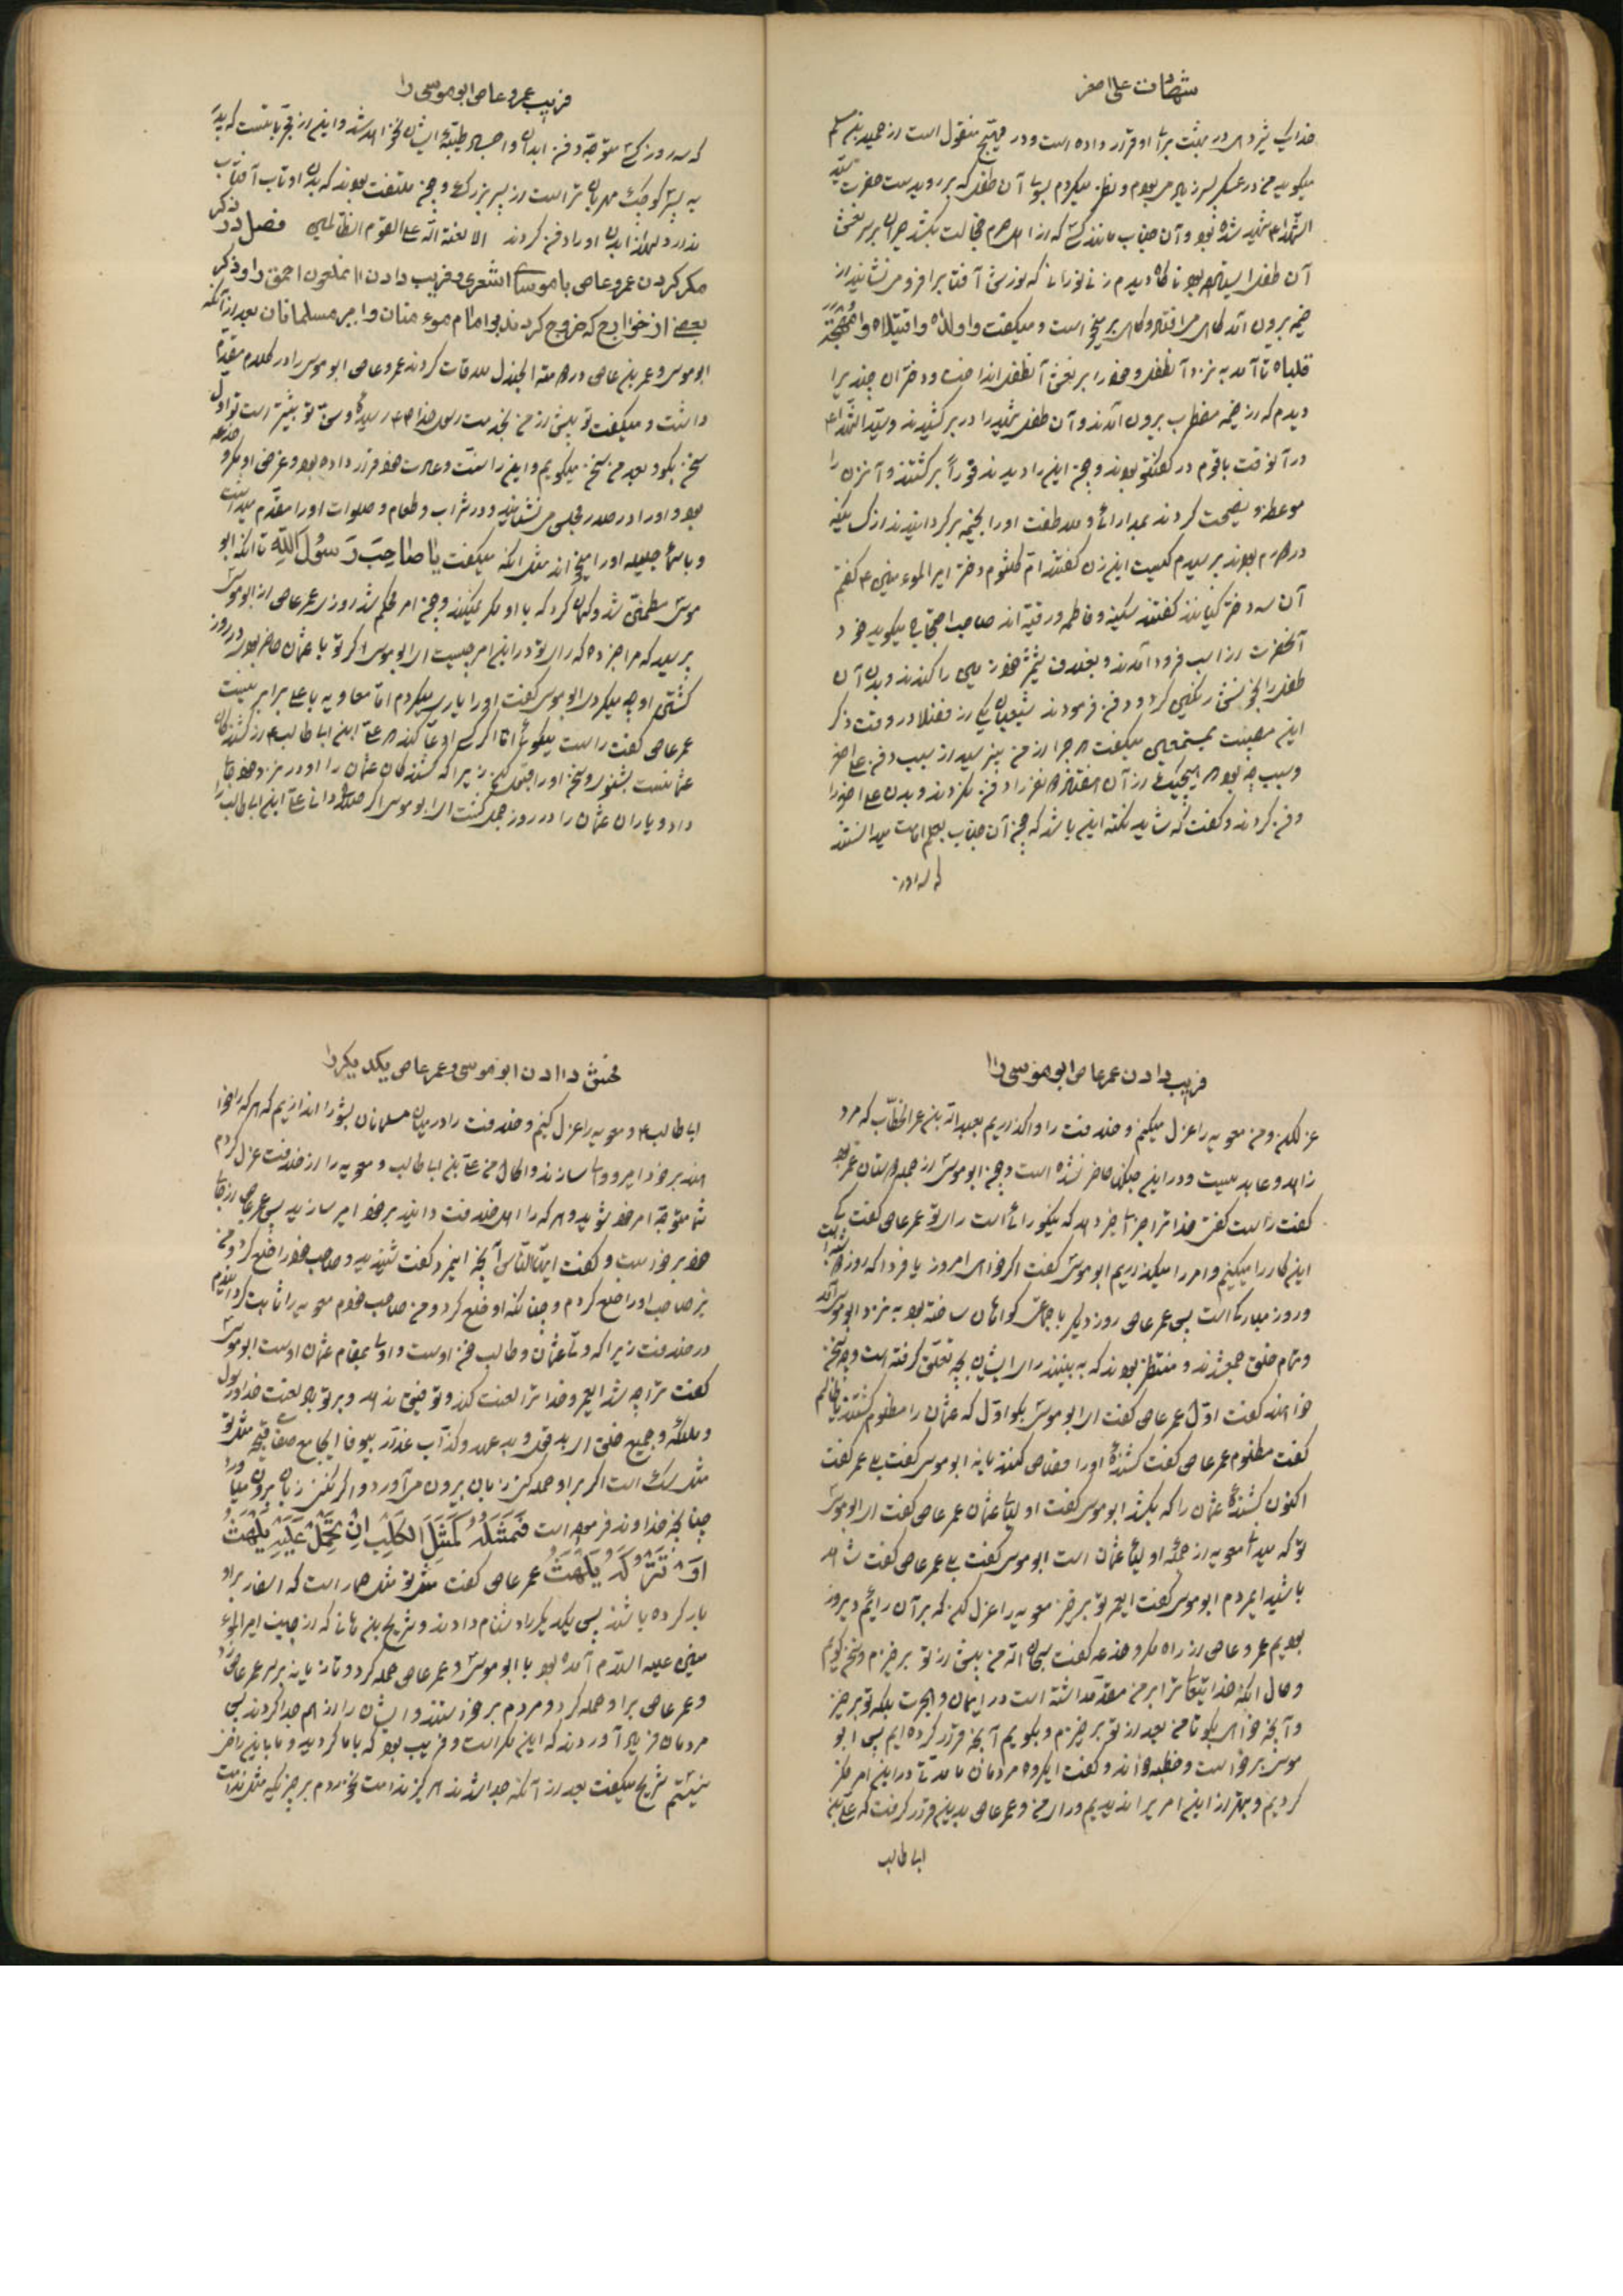 شهادت علی اصغر
خدایی نیز در در مثبت برای او قرار داده است و در منقول است از حمید بن مسلم
میگوید من در عسکر بودم و نظر میکردم بسوی آن طفلی که بر روی دست حضرت سید
الشهدا شهید شده بود و آن جناب مانند کسی که از اهل حرم خجالت بکشد حیران بر سر نعش
آن طفل ایستاده بود ناگاه دیدم زنی نورانی که نورش آفتاب را فرو می نشانید از
خیمه بیرون آمد گاهی می افتاد و گاهی بر میخاست و میگفت وا ولداه وا قتیلاه وا مهجة
قلباه تا آمد به نزد آن طفل و خود را بر نعش آن طفل انداخت و دختران چندی را
دیدم که از خیمه مضطرب بیرون آمدند و آن طفل شهید را در بر کشیدند و سید الشهدا
در آنوقت با قوم در گفتگو بودند و چون این را دیدند فورا برگشتند و آن زن را
موعظه و نصیحت کردند بمدارائی و ملاطفت او را بخیمه برگردانیدند از کسانیکه
در حرم بودند پرسیدم کیست این زن گفتند ام کلثوم دختر امیر المومنین گفتم
آن سه دختر کیانند گفتند سکینه و فاطمه و رقیه اند صاحب احتجاج میگوید خود
آنحضرت از اسب فرود آمدند و بغلاف شمشیر خود زمین را کندند و بدن آن
طفل را بخونش رنگین کرد و دفن فرمودند شیعیان یکی از فضلا در وقت ذکر
این مصیبت بمستمعین میگفت چرا از من نپرسید از سبب دفن علی اصغر
و سبب چه بود که هیچیک از آن هفتاد و دو نفر را دفن نکردند و بدن علی اصغر را
دفن کردند و گفت که شاید نکته این باشد که چون آن جناب بعلم امامت میدانستند
که سه روز
فریب عمروعاص ابوموسی را
که سه روز کسی متوجه دفن ابدان و اجساد طیبه ایشان نخواهد شد و این از تجربیاتست که پدر
به پسر کوچک مهربان تر است از پسر بزرگ و چون ملتفت بودند که بدن او تاب آفتاب
ندارد لهذا بدن او را دفن کردند الا لعنة الله علی القوم الظالمین فصل در ذکر
مکر کردن عمروعاص با موسی اشعری و فریب دادن ان ملعون احمق را و ذکر
بعضی از خوارج که خروج کردند بر امام مومنان و امیر مسلمانان بعد از آنکه
ابوموسی و عمر بن عاص در دومة الجندل ملاقات کردند عمروعاص ابوموسی را در کلام مقدم
داشت و میگفت تو پیش از من بخدمت رسول خدا رسیده و سن تو بیشتر است تو اول
سخن بگو و بعد من سخن میگویم و این را سنت و عادت خود قرار داده بود و غرض او مکر و خدعه
بود و او را در صدر مجلس می نشانید و در شراب و طعام و صلوات او را مقدم میداشت
و باسماء جمیله او را میخواند مثل انکه میگفت یا صاحِبَ رَسُولَ اللّهِ تا انکه ابو
موسی مطمئن شد و گمان کرد که با او مکر نمیکند و چون امر محکم شد روزی عمر عاص از ابوموسی
پرسید که مرا خبر ده که رای تو در این امر چیست ای ابوموسی اگر تو با عثمان حاضر بودی در روز
کشتن او چه میکردی ابوموسی گفت او را یاری میکردم اما معاویه با علی برابر نیست
عمر عاص گفت راست میگوئی اما اگر کسی ادعا کند که علی ابن ابی طالب از کشندگان
عثمانست بشنو سخن او را قبول کن زیرا که کشندگان عثمان را او در نزد خود جا
داد و یاران عثمان را در روز جمل کشت ای ابوموسی اگر صلاح دانی علی ابن ابی طالب را
فریب دادن عمرعاص ابوموسی را
عزل کن و من معویه را عزل میکنم و خلافت را واگذاریم بعبد الله بن عمر الخطاب که مرد
زاهد و عابدیست و در این جنگ حاضر نشده است و چون ابوموسی از جمله دوستان عمر بود
گفت راست گفتی خدا ترا جزای خیر دهد که نیکو رائی است رای تو عمر عاص گفت کی
این کار را میکنیم و امر را میگذاریم ابوموسی گفت اگر خواهی امروز یا فردا که روز دوشنبه است
و روز مبارکی است پس عمر عاص روز دیگر با جماعت گواهان ساخته بود به نزد ابوموسی آمد
و تمام خلق جمع شدند و منتظر بودند که به بینند رای ایشان بچه تعلق گرفته است و چه سخن
خواهند گفت اول عمر عاص گفت ای ابوموسی بگو اول که عثمان را مظلوم کشتند یا ظالم
گفت مظلوم عمر عاص گفت کشنده او را قصاص کنند یا نه ابوموسی گفت بلی عمر گفت
اکنون کشنده عثمان را که بکشد ابوموسی گفت اولیای عثمان عمر عاص گفت ای ابوموسی
تو که میدانی معویه از جمله اولیای عثمان است ابوموسی گفت بلی عمر عاص گفت شاهد
باشید ایمردم ابوموسی گفت ای عمر تو برخیز معویه را عزل کن که بر آن رائیم دیروز
بودیم عمروعاص از راه مکر و خدعه گفت سبحان الله من پیش از تو برخیزم و سخن گویم
و حال آنکه خدایتعالی ترا بر من مقدم داشته است در ایمان و هجرت بلکه تو برخیز
و آنچه خواهی بگو تا من بعد از تو برخیزم و بگویم آنچه قرار کرده ایم پس ابو
موسی برخواست و خطبه خواند و گفت ایگروه مردمان ما مدتی در این امر فکر
کردیم و بهتر از این امری را ندیدیم و رای من و عمر عاص بدین قرار گرفت که علی بن
ابی طالب
فحش دادن ابوموسی و عمرعاص یکدیگر را
ابی طالب و معویه را عزل کنیم و خلافت را در میان مسلمانان بشورا اندازیم که هر که را خوا
هند بر خود امیر و والی سازند و الحال من علی بن ابی طالب و معویه را از خلافت عزل کردم
شما متوجه امر خود شوید و هر که را اهل خلافت دانید بر خود امیر سازید پس عمرعاص از جای
خود برخواست و گفت ایها الناس آنچه اینمرد گفت شنیدید و صاحب خود را خلع کرد و من
نیز صاحب او را خلع کردم و چنانکه او خلع کرد و من صاحب خودم معویه را ثابت گردانیدم
در خلافت زیرا که ولی عثمان و طالب خون اوست و اولی بمقام عثمان اوست ابوموسی
گفت ترا چه شد ای عمر و خدا ترا لعنت کند و توفیق ندهد و بر تو باد لعنت خدا و رسول
و ملائکه و جمیع خلق ای بد قول و بد عهد و کذاب غدار بیوفا ای جامع صفات قبیحه مثل تو
مثل سگ است اگر بر او حمله کنی زبان بیرون می آورد و اگر نکنی زبان بیرون می آورد
چنانچه خداوند فرموده است فَمَثَلُهُ کَمَثَلِ الکَلبِ اِن تَحمِل عَلَیهِ یَلهَث
اَو تَترُکهُ یَلهَث عمر عاص گفت مثل تو مثل حمار است که اسفار بر او
بار کرده باشند پس یکدیگر را دشنام دادند و شریح بن هانی که از جانب امیر المو
منین علیه السلام آمده بود با ابوموسی و عمرعاص حمله کرد و تازیانه بر سر عمرعاص زد
و عمر عاص بر او حمله کرد و مردم برخواستند و ایشان را از هم جدا کردند پس
مردمان فریاد آوردند که این مکر است و فریب بود که با ما کردید و ما باین راضی
نیستیم شریح میگفت بعد از آنکه جدا شدند هرگز ندامت نخوردم بر چیزی که مثل ندامت